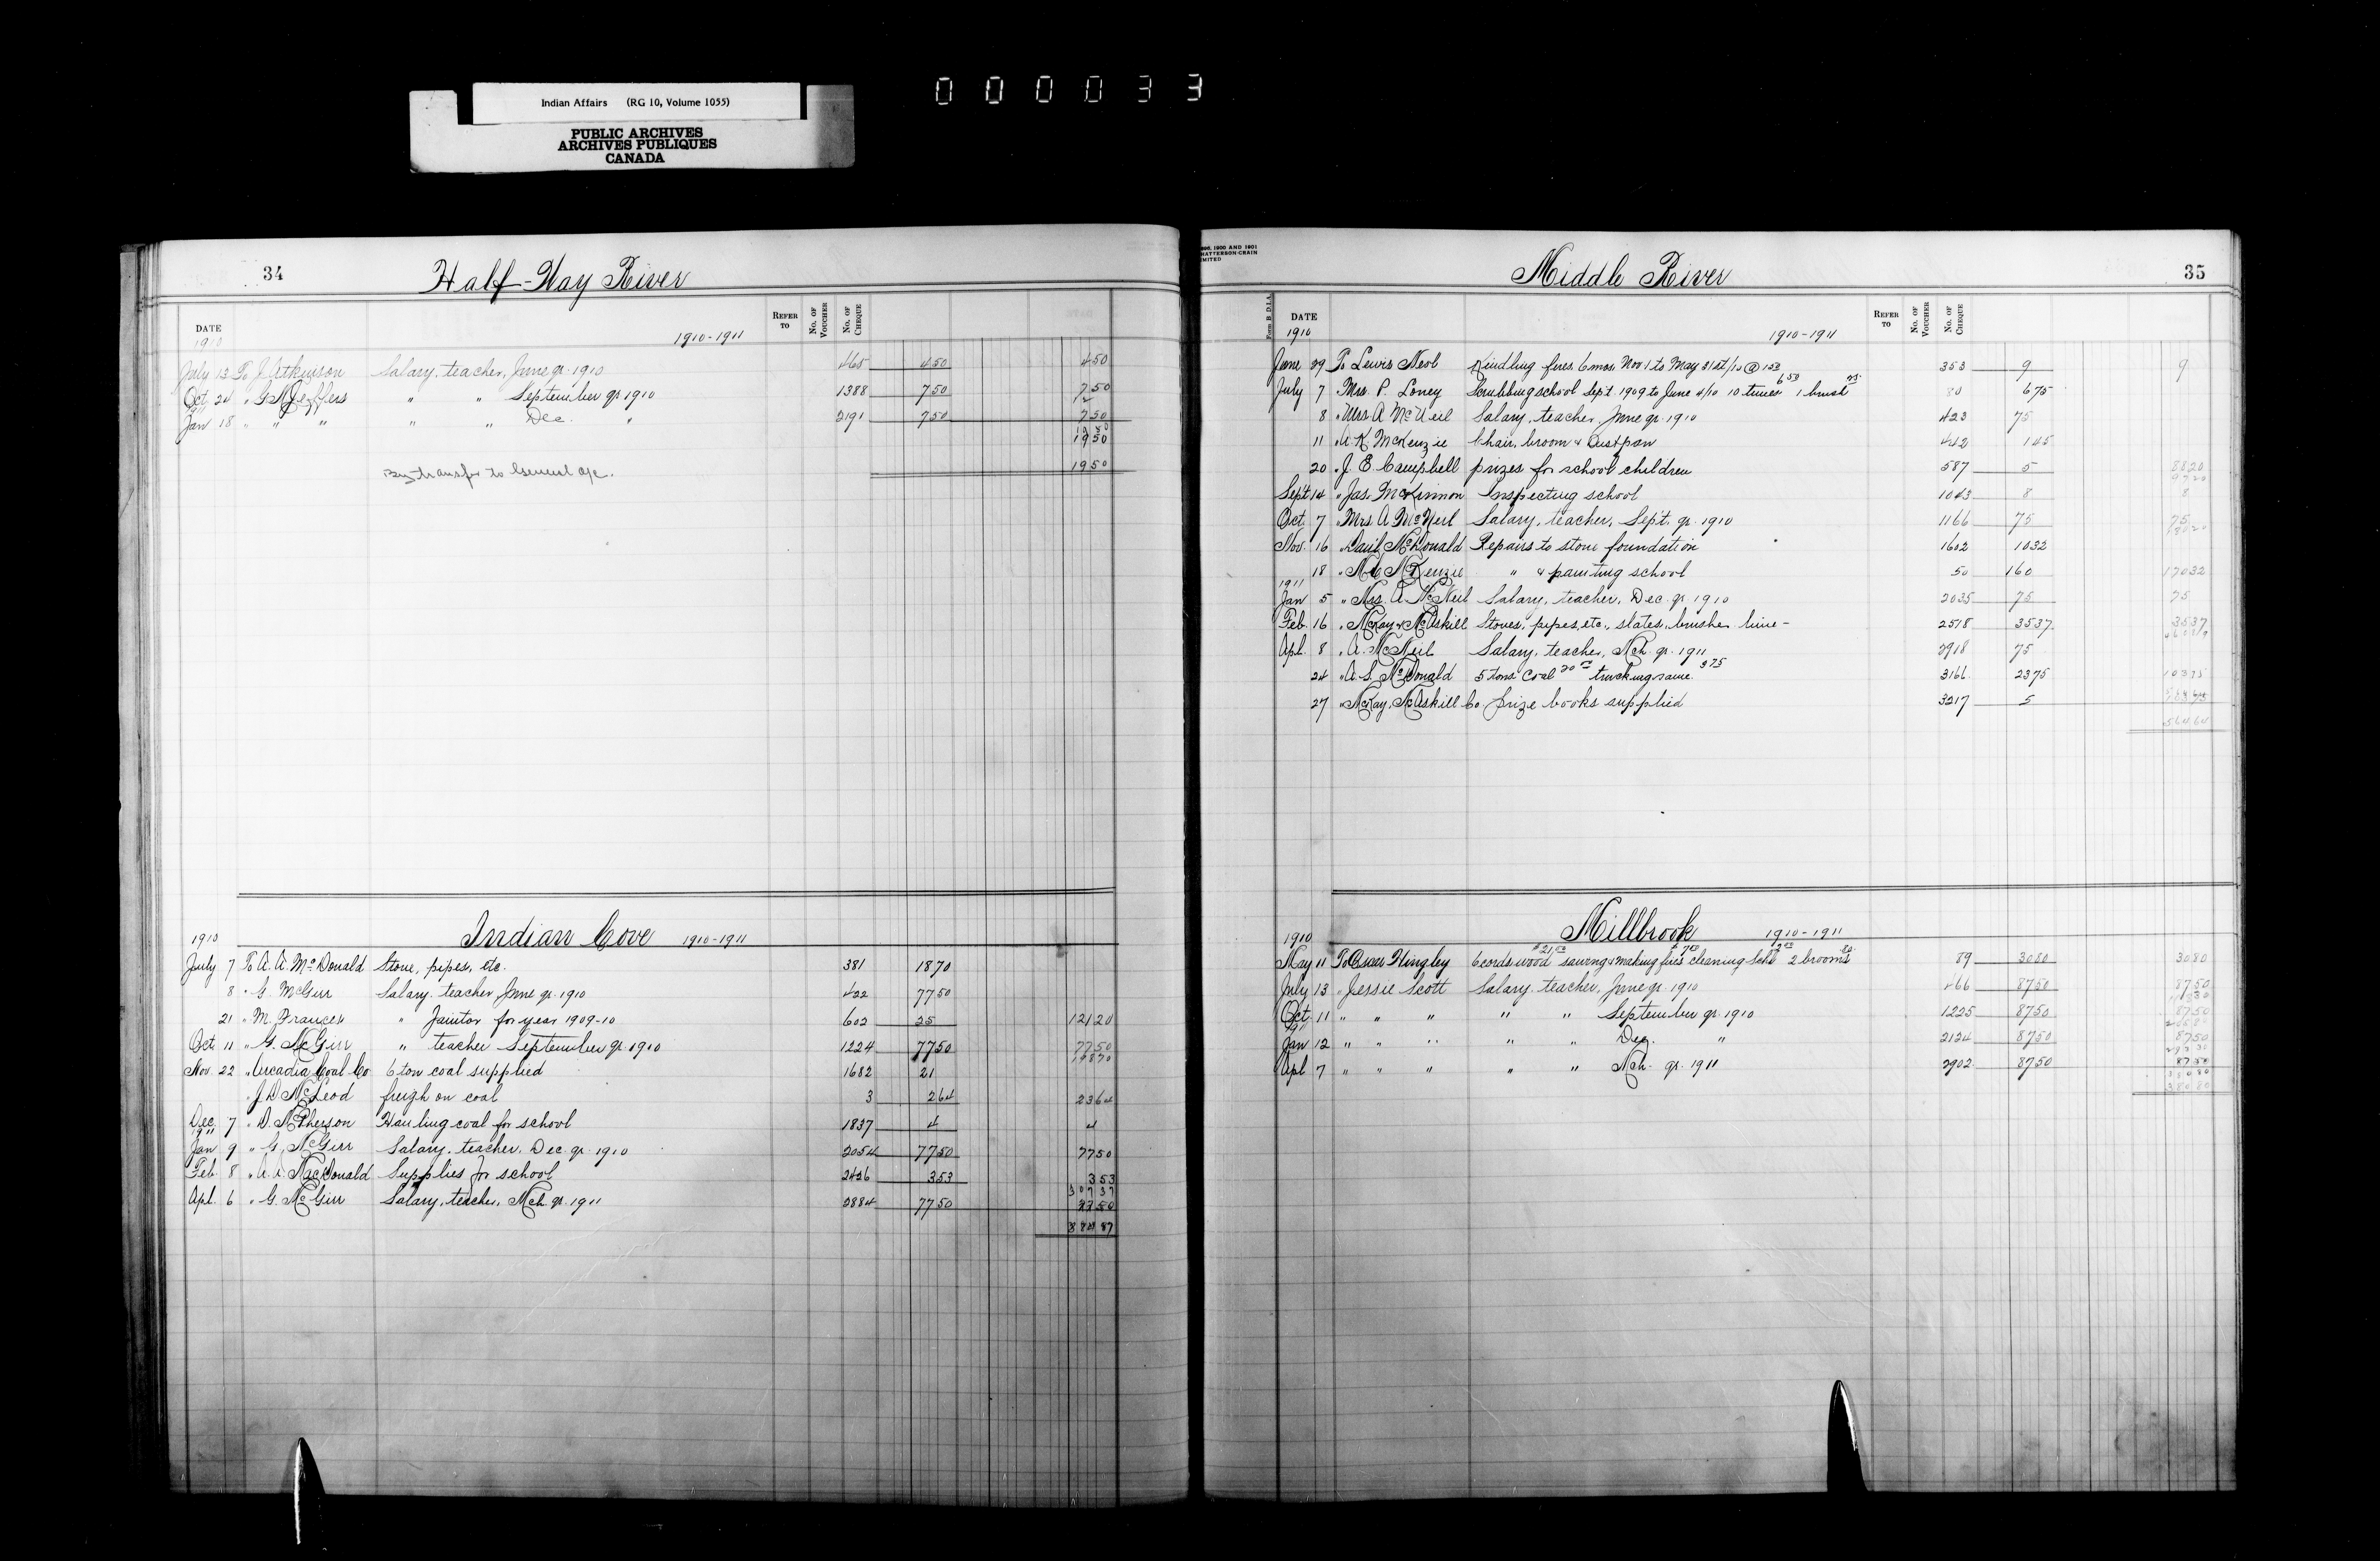 Indian Affairs (RG 10, Volume 1055)
PUBLIC ARCHIVES
ARCHIVES PUBLIQUES
CANADA
000033
34 Half-Way River
DATE REFER TO No. OF VOUCHER No. OF CHEQUE
1910 1910-1911
July 13 To J. Atkinson Salary, teacher, June qr. 1910 465 450 450
Oct. 24 " G N Jeffers " " September qr 1910 1388 750 750
1911
Jan 18 " " " " " Dec. " 2191 750 750
1950
By transfer to General a/c. 1950
1910 Indian Cove 1910-1911
July 7 To A. A. McDonald Stove, pipes, etc. 381 1870
8 " G. McGirr Salary, teacher June qr. 1910 422 7750
21 " M. Francis " Janitor for year 1909-10 602 25 12120
Oct. 11 " G. McGirr " teacher September qr. 1910 1224 7750 7750
19870
Nov. 22 " Arcadia Coal Co 6 ton coal supplied 1682 21
" J. D McLeod freigh on coal 3 264 2364
Dec. 7 " D. McPherson Hauling coal for school 1837 4 4
1911
Jan 9 " G. McGirr Salary, teacher, Dec. qr. 1910 2054 7750 7750
Feb. 8 " A. A. MacDonald Supplies for school 2426 353 353
30737
Apl. 6 " G. McGirr Salary, teacher, Mch. qr. 1911 2884 7750 7750
38487
1896, 1900 AND 1901
HATTERSON-CRAIN
LIMITED
Middle River 35
Form B D.I.A.
DATE REFER TO No. OF VOUCHER No. OF CHEQUE
1910 1910-1911
June 29 To Lewis Newl Kindling fires 6 mos. Nov 1 to May 31st/10 @ 150 353 9 9
July 7 " Mrs. P. Loney Scrubbing school Sept. 1909 to June 4/10 10 times 650 1 brush 25 80 675
8 " Mrs A McNeil Salary, teacher, June qr. 1910 423 75
11 " A. K. McKenzie Chair, broom & Dustpan 442 145
20 " J. E. Campbell prizes for school children 587 5 8820
9720
Sept 14 " Jas. McKinnon Inspecting school 1043 8 8
Oct. 7 " Mrs A McNeil Salary, teacher, Sept. qr. 1910 1166 75 75
18020
Nov. 16 " David McDonald Repairs to stone foundation 1602 1032
18 " McKenzie " & painting school 50 160 17032
1911
Jan 5 " Mrs. A. McNeil Salary, teacher, Dec. qr. 1910 2035 75 75
Feb. 16 " McKay & McAskill Stoves, pipes, etc., slates, brushes lime - 2518 3537 3537
Apl. 8 " A. McNeil Salary, teacher, Mch. qr. 1911 2918 75
24 " A. S. McDonald 5 tons Coal 20 00 trucking same. 375 3166 2375 10375
27 " McKay, McAskill Co. prize books supplied 3217 5
56464
1910 Millbrook 1910-1911
May 11 To Oscar Hingley 6 cords wood $21.00 sawing & making fires $7.00 cleaning Schl 2 00 2 brooms 80 89 3080 3080
July 13 " Jessie Scott Salary, teacher, June qr. 1910 466 8750 8750
11830
Oct. 11 " " " " " September qr. 1910 1225 8750 8750
20580
1911
Jan 12 " " " " " Dec. " 2124 8750 8750
29330
Apl 7 " " " " " Mch. qr. 1911 2902 8750 8750
38080
38080